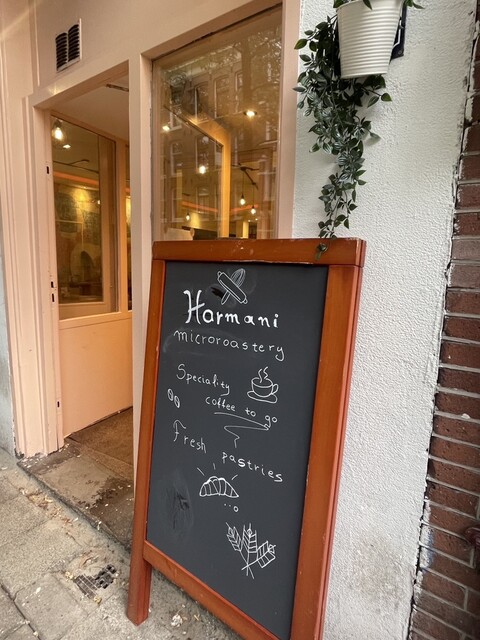 Harmani
microroastery
Speciality
coffee to go
Fresh
pastries